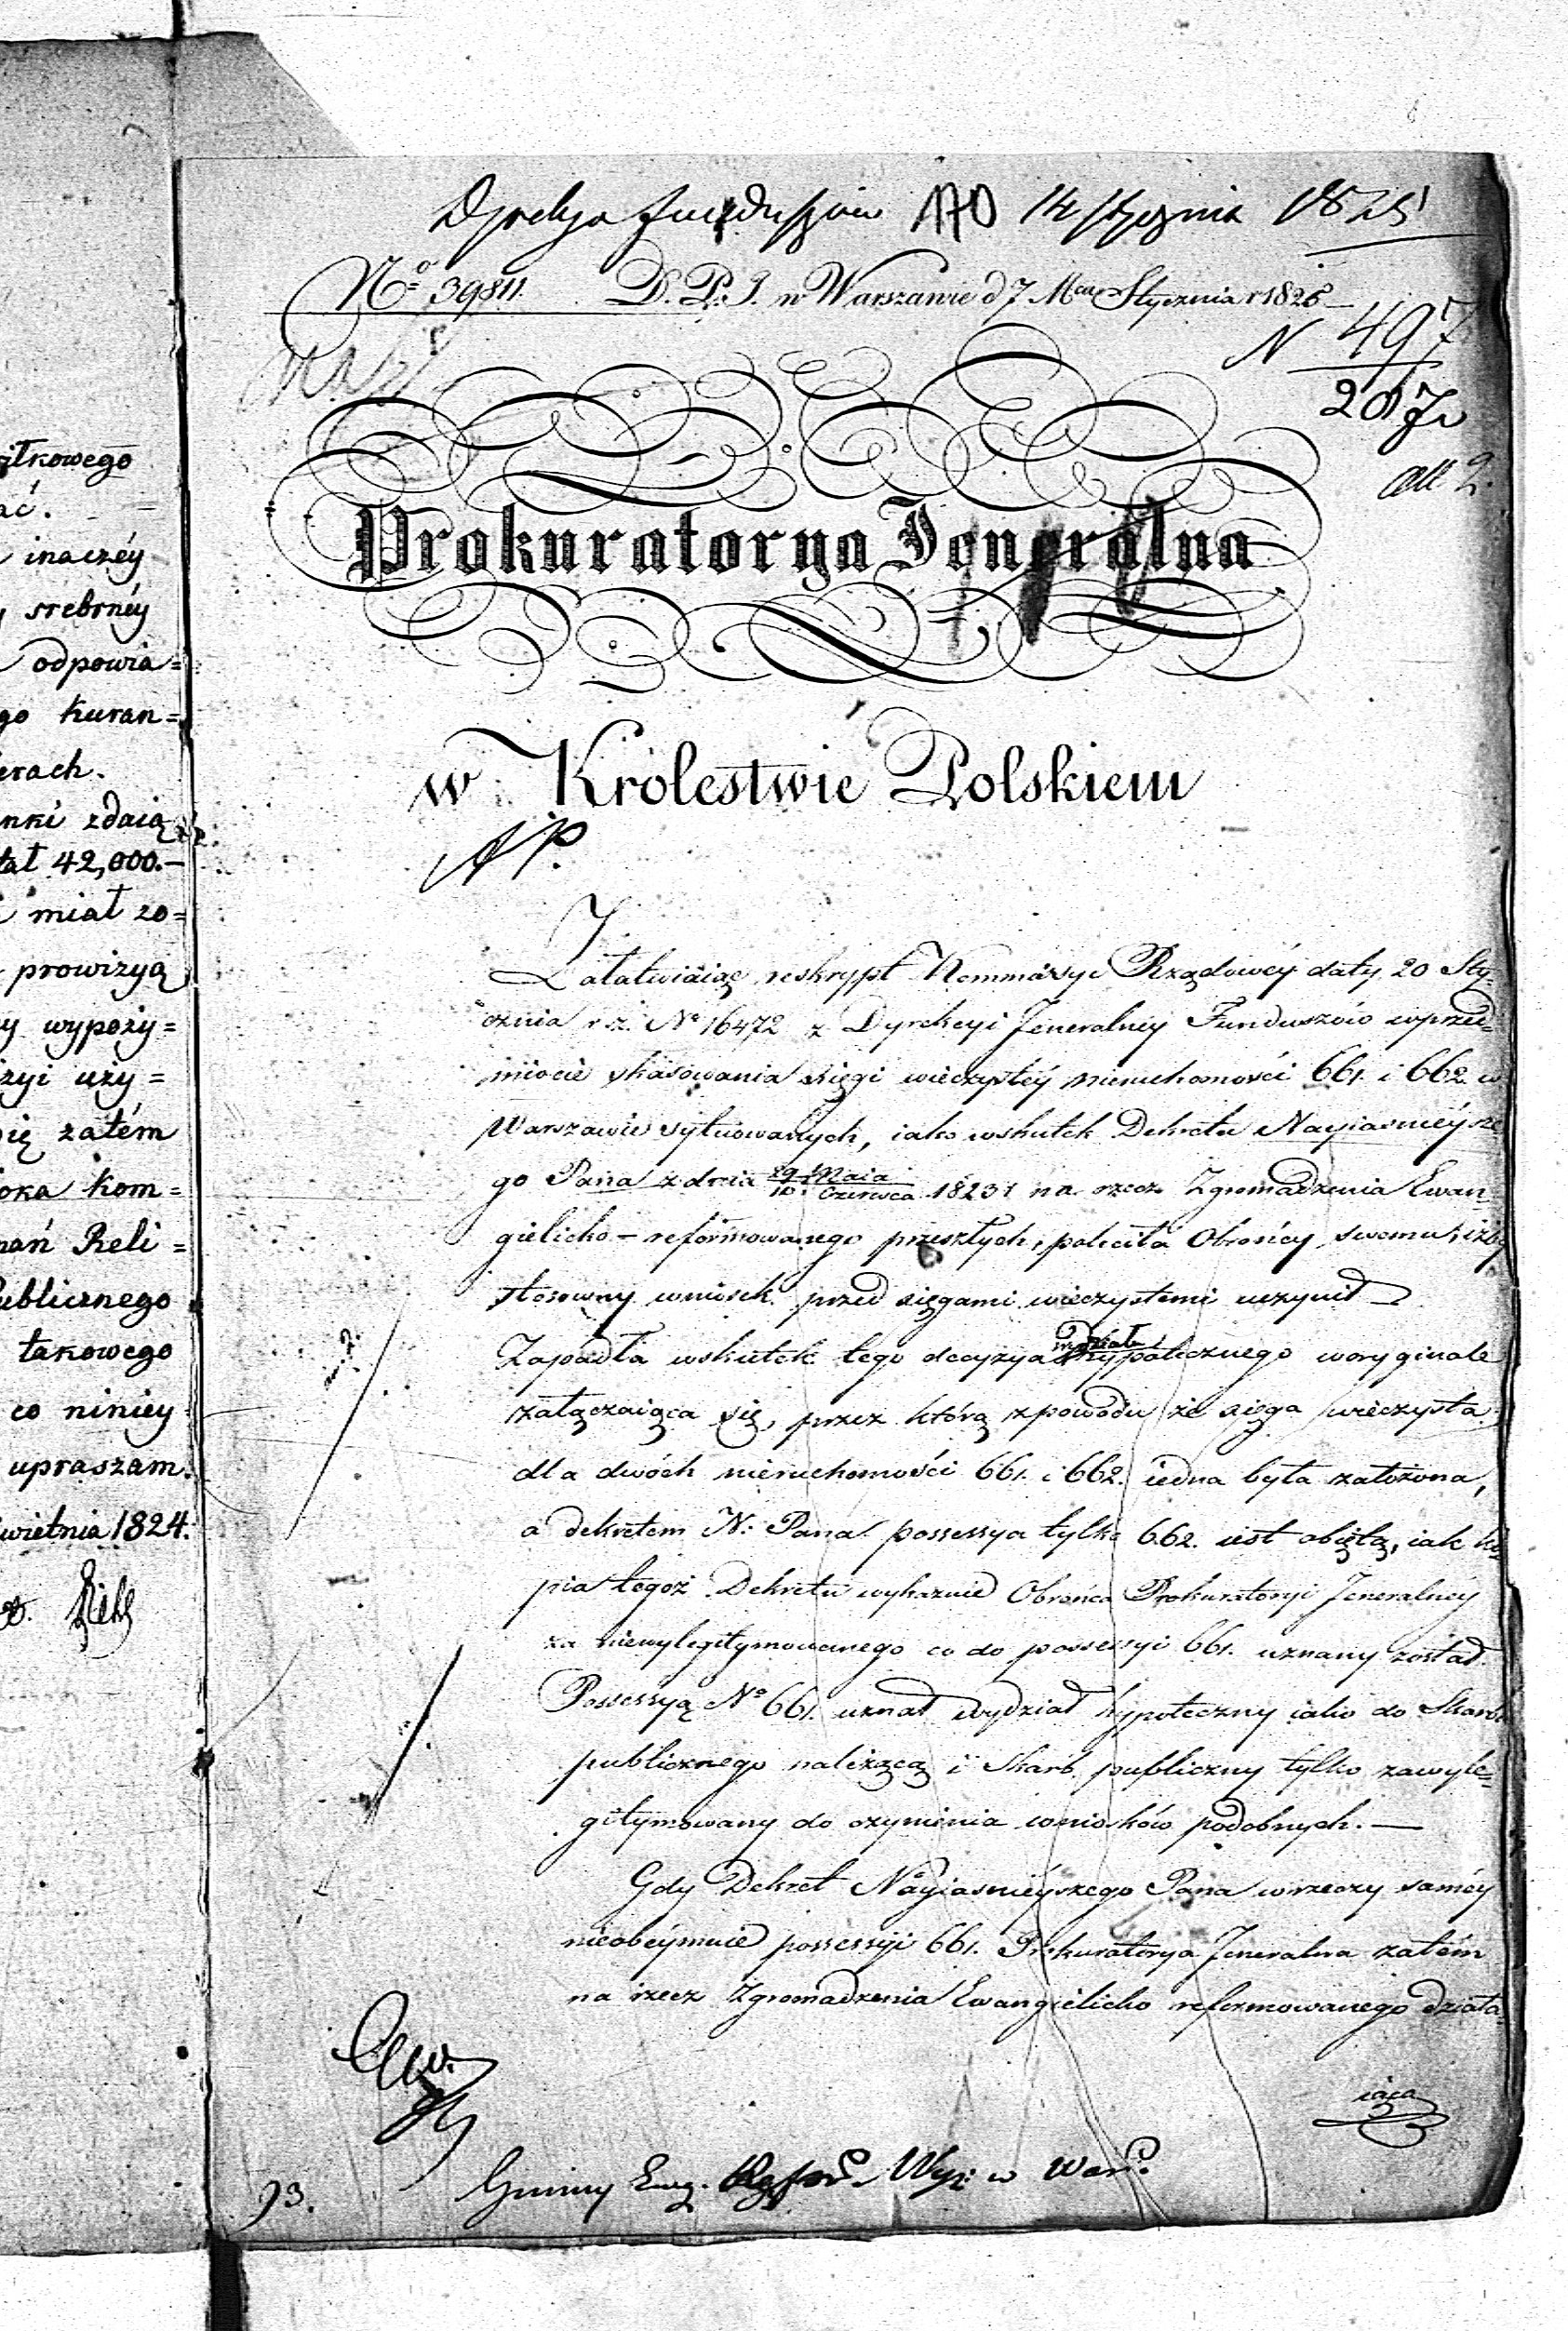 ątkowego
ać.
inaczéy
srebrnéy
odpowia=
go kuran=
erach.
nki zdaią
tał 42,000.—
miał zo=
prowizyą
y wypoży=
zyi uży=
ię zatém
oka kom=
nań Reli=
ublicznego
takowego
co niniey
upraszam.
wietnia 1824.
Dyrekcya Funduszów 170 14 stycznia 1825
No 39811. D. P. J. w Warszawie d 7 Mca Stycznia r 1825
N 497
all 2.
Prokuratorya Jeneralna
w Królestwie Polskiem
Załatwiaiąc reskrypt Kommissyi Rządowéy daty 20 Sty-
cznia r. z. No 16472 z Dyrekcyi Jeneralnéy Funduszów w przed-
miocie skasowania xięgi wieczystéy nieruchomości 661. i 662. w
Warszawie sytuowanych, iako wskutek Dekretu Nayiaśnieysze-
go Pana z dnia 29 Maia / 10 Czerwca 1823 r na rzecz Zgromadzenia Ewan-
gielicko-reformowanego przeszłych, poleciła Obrońcy swemu, iżby
stosowny wniosek przed xięgami wieczystemi uczynił
Zapadła wskutek tego decyzya wydziału hypotecznego w oryginale
załączaiąca się, przez którą z powodu że xięga wieczysta
dla dwóch nieruchomości 661. i 662. iedna była założona,
a dekretem N: Pana possessya tylko 662. iest obiętą, iak ko-
pia tegoż Dekretu wykazuie Obrońca Prokuratoryi Jeneralnéy
za niewylegitymowanego co do possessyi 661. uznany został.
Possessyą No 661. uznał wydział hypoteczny iako do Skarbu
publicznego należącą i Skarb publiczny tylko za wyle-
gitymowany do czynienia wniosków podobnych. —
Gdy Dekret Nayiaśnieyszego Pana w rzeczy saméy
nieobéymuie possessyi 661. Prokuratorya Jeneralna zatém
na rzecz Zgromadzenia Ewangielicko reformowanego działa-
iąca
93.
Gminy Ewg. Refor. Wyz: w War.